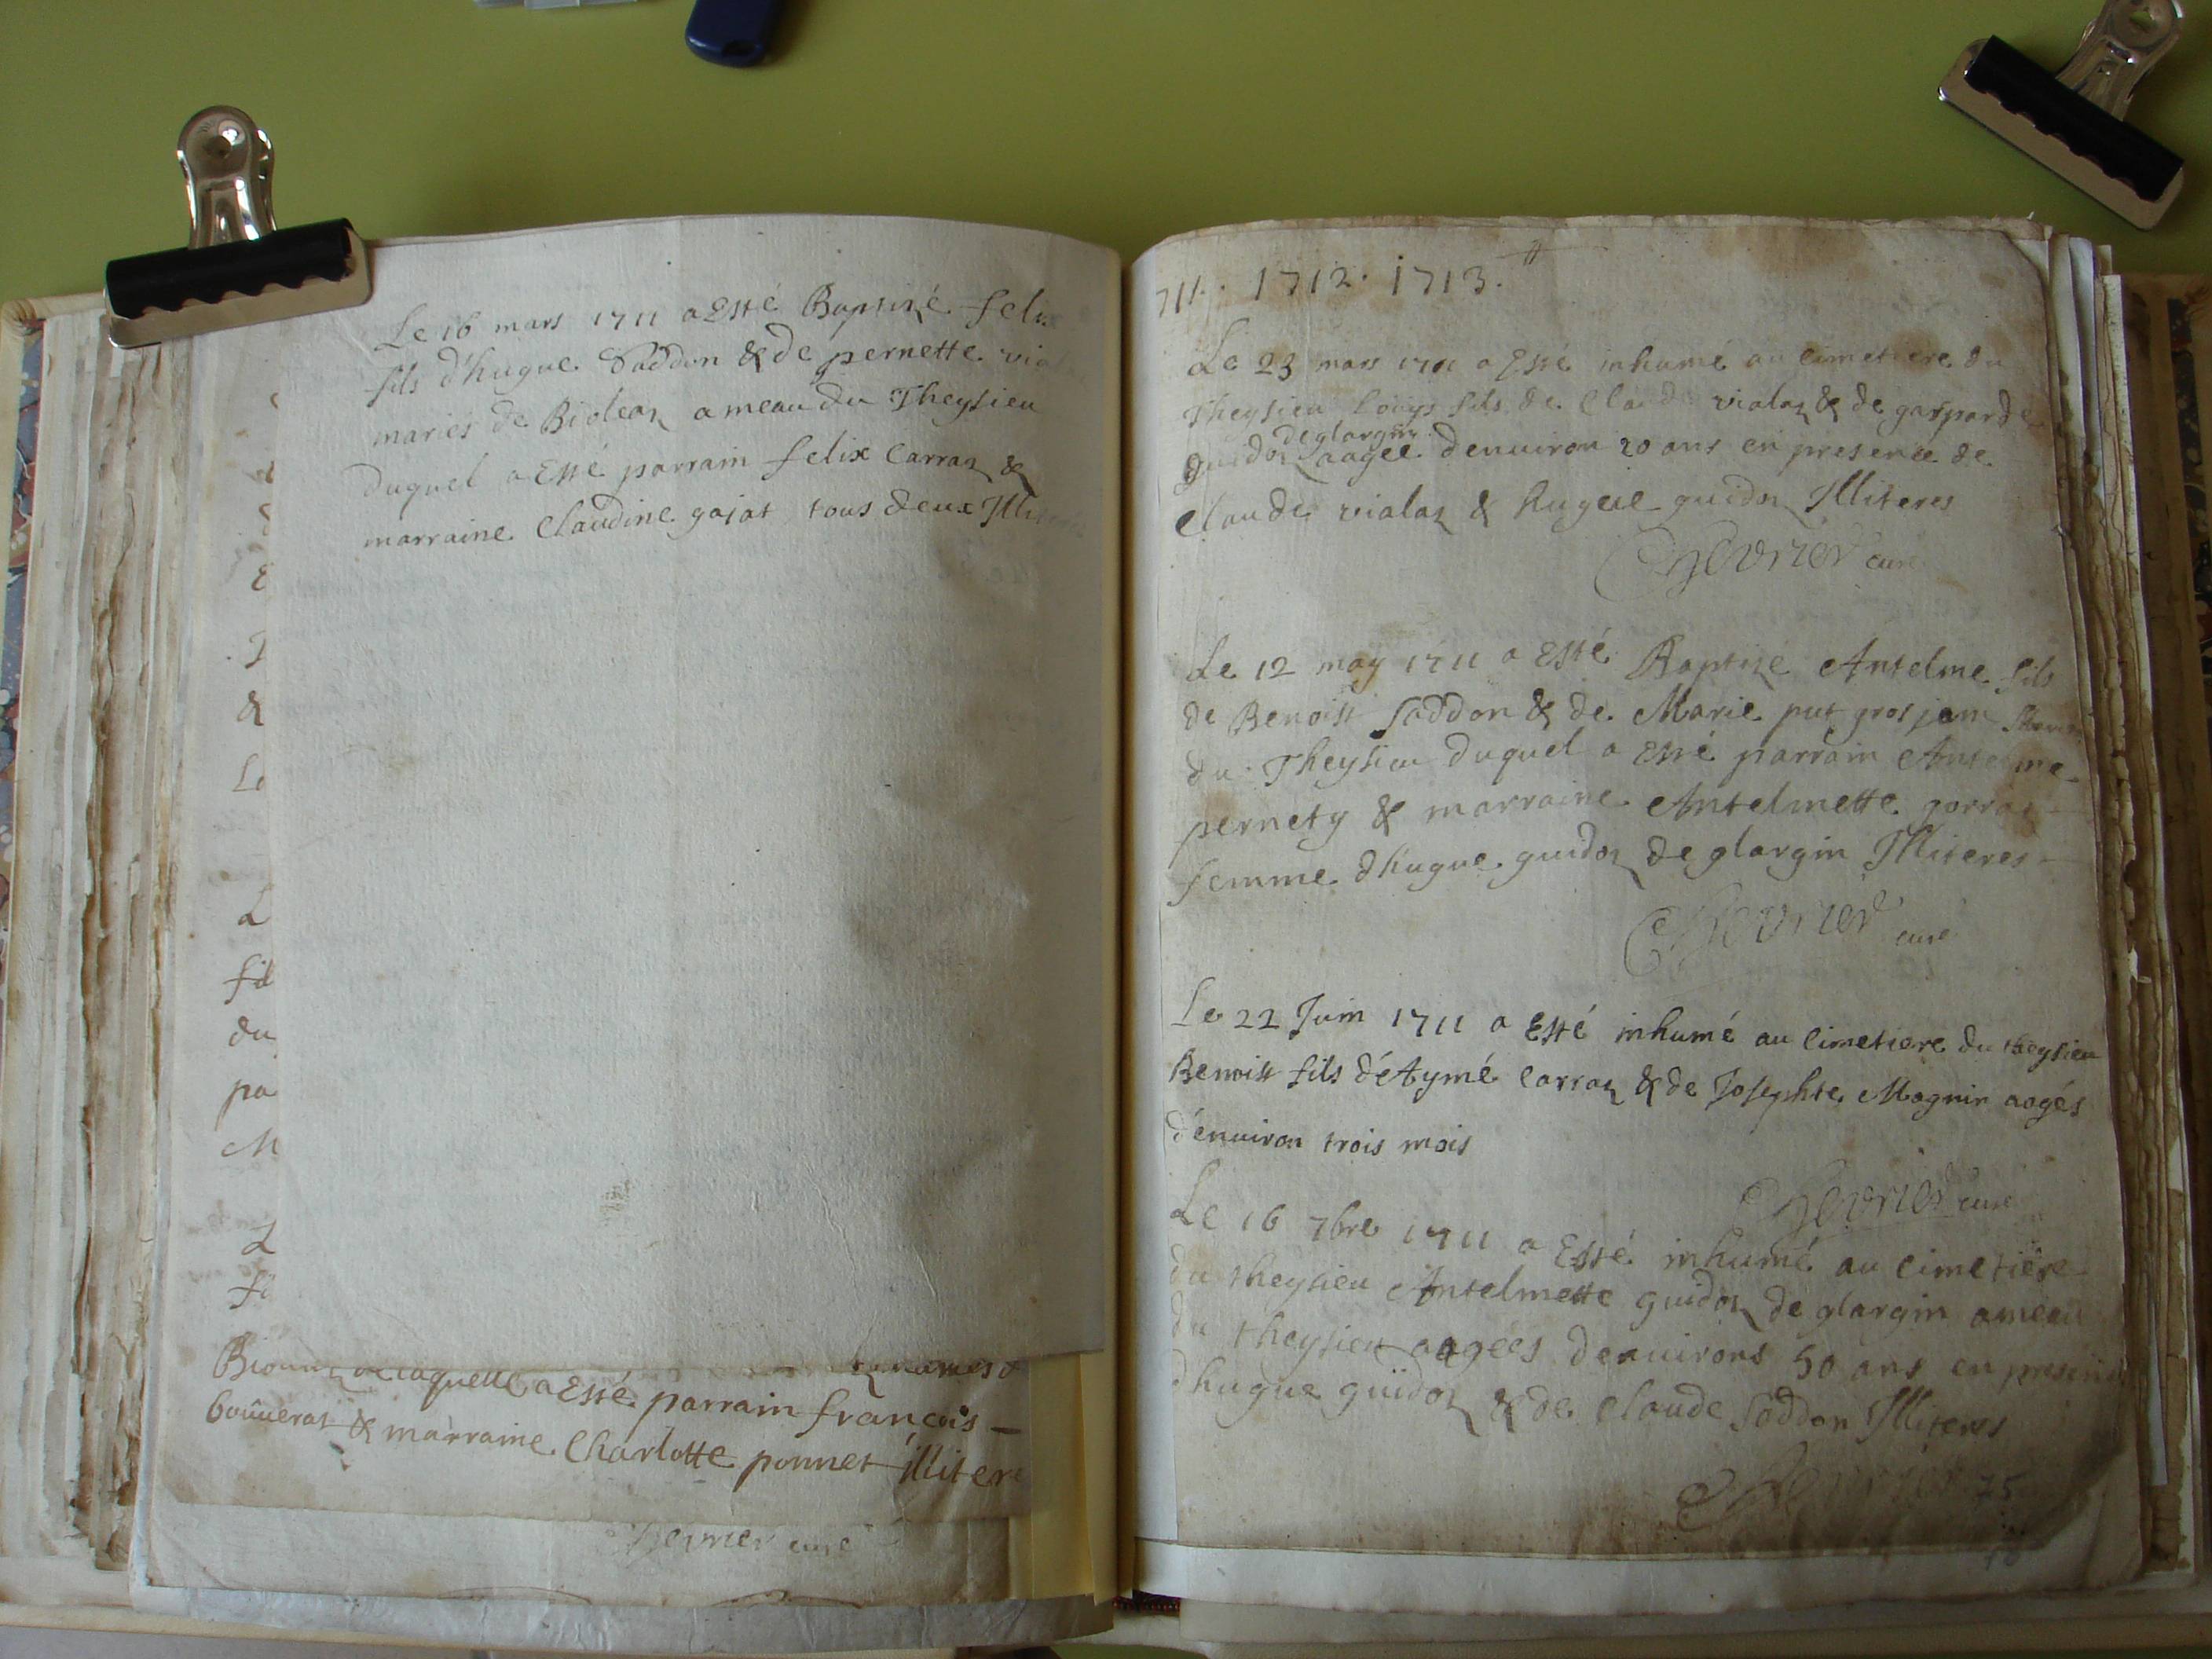 Le 16 mars 1711 a Esté Baptizé felix
fils d'hugue Soddon & de pernette
maries de Bioleaz ameau du Theysieu
duquel a Esté parrain felix Carraz &
marraine Claudine gojat tous deux
&
Le
L
fil
du
pa
M
L
fi
de laquelle a Esté parrain françois –
bouuerat & marraine Charlotte ponnet illitere
Chevrier curé
711. 1712. 1713.
Le 23 mars 1711 a Esté inhumé au Cimetiere du
Theysieu Louys fils de Claude vialaz & de gasparde
deglargin
guidoz aagee denuiron 20 ans en presence de
Claude vialaz & hugue guidoz Illiteres
Chevrier curé
Le 12 may 1711 a Esté Baptizé Antelme fils
de Benoist Soddon & de Marie put grosjean
du Theysieu duquel a Esté parrain Antelme
pernety & marraine Antelmette
femme d'hugue guidoz de glargin Illiteres
Chevrier curé
Le 22 Juin 1711 a Esté inhumé au Cimetiere du theysieu
Benoist fils d'Aymé Carraz & de Josephte Magnin aagés
d'enuiron trois mois
Chevrier curé
Le 16 7bre 1711 a Esté inhumé au cimetiere
du theysieu Antelmette guidoz de glargin ameau
du theysieu aagées denuirons 50 ans en presence
d'hugue guidoz & de Claude Soddon Illiteres
Chevrier 75